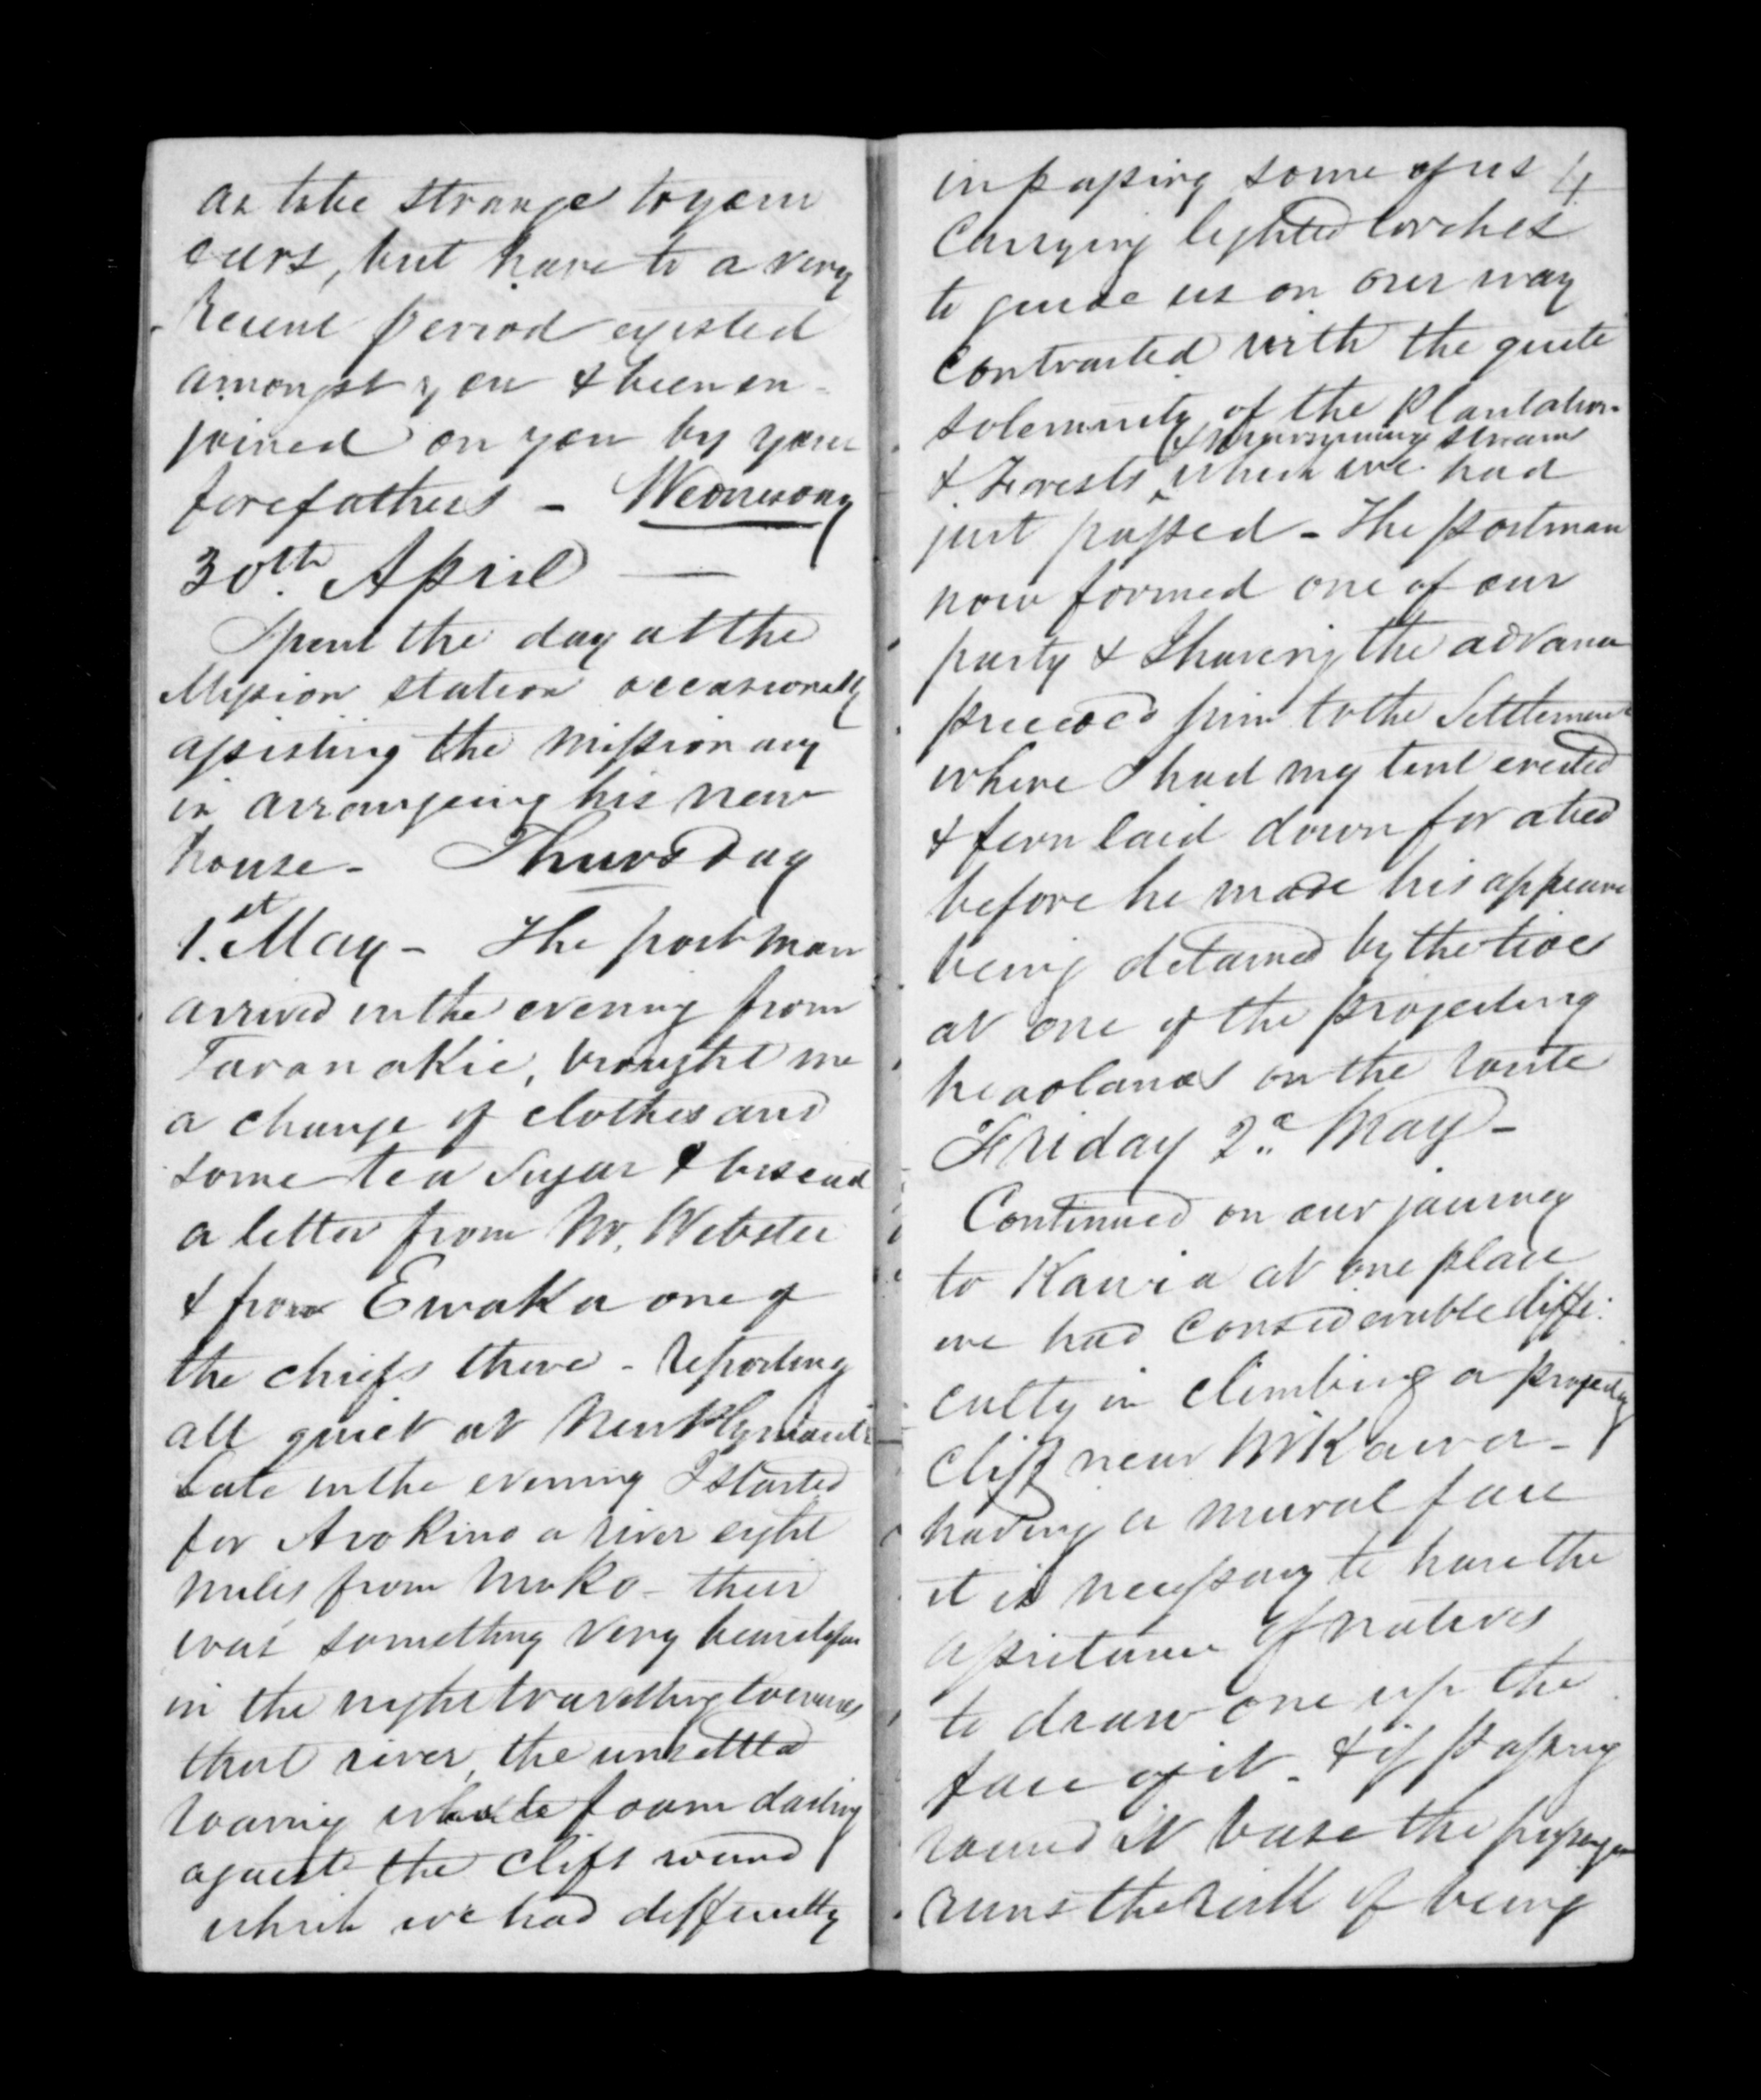 as to be strange to your
ears, but have to a very
recent period existed
amongst you & been en-
joined on you by your
forefathers - Wednesday
30th April —
Spent the day at the
Mission station occasionally
assisting the missionary
in arrangeing his new
house - Thursday
1.st May - The postman
arrived in the evening from
Taranakie, brought me
a change of clothes and
some tea sugar & biscuit
a letter from Mr. Webster
& from Ewaka one of
the chiefs there - reporting
all quiet at New Plymouth
Late in the evening I started
for Awokino a river eight
miles from Moko - their
was something very beautiful
in the night travelling towards
that river, the unsettled
roaring white foam dashing
against the clifs round
which we had difficulty
in passing some of us 4
carrying lighted torches
to guide us on our way
contrasted with the quite
solemnity of the plantation
& murmuring streams
& Forests which we had
just passed - The postman
now formed one of our
party & I having the advance
preceded him to the Settlement
where I had my tent erected
& fern laid down for a bed
before he made his appearance
being detained by the tides
at one of the projecting
headlands on the route
Friday 2.d May -
Continued on our journey
to Kawia at one place
we had considerable diffi-
culty in climbing a projecting
cliff near
having a mural face
it is necessary to have the
assistance of natives
to draw one up the
face of it - & if passing
round it base the passenger
runs the risk of being